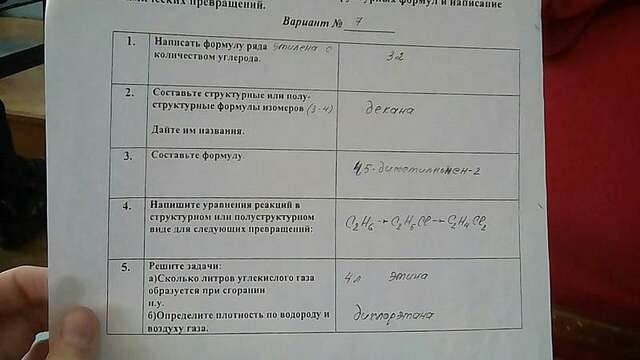 структурных формул и написание
химических превращений.
Вариант № 7
1. Написать формулу ряда этилена с
количеством углерода. 32
2. Составьте структурные или полу-
структурные формулы изомеров (3-4) декана
Дайте им названия.
3. Составьте формулу 4,5-диметилнонен-2
4. Напишите уравнения реакций в
структурном или полуструктурном
виде для следующих превращений: C2H6 → C2H5Cl → C2H4Cl2
5. Решите задачи:
а)Сколько литров углекислого газа 4л этина
образуется при сгорании
н.у.
б)Определите плотность по водороду и дихлорэтана
воздуху газа.